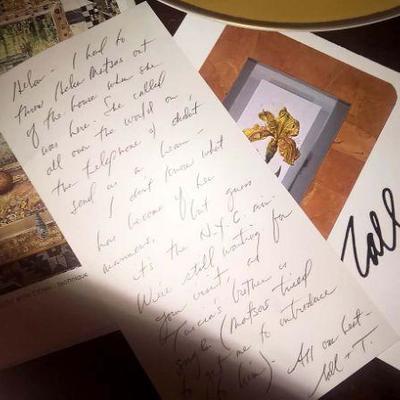 Helen – I had to
throw Helen out
of the house when she
was here. She called
all over the world on
the telephone & didn't
send us a bean –
I don't know what
has become of her
manners, but guess
it's the N.Y.C. air.
We're still waiting for
your visit, as
brother is
single (
to get me to introduce
to him). All our best –
+ T.